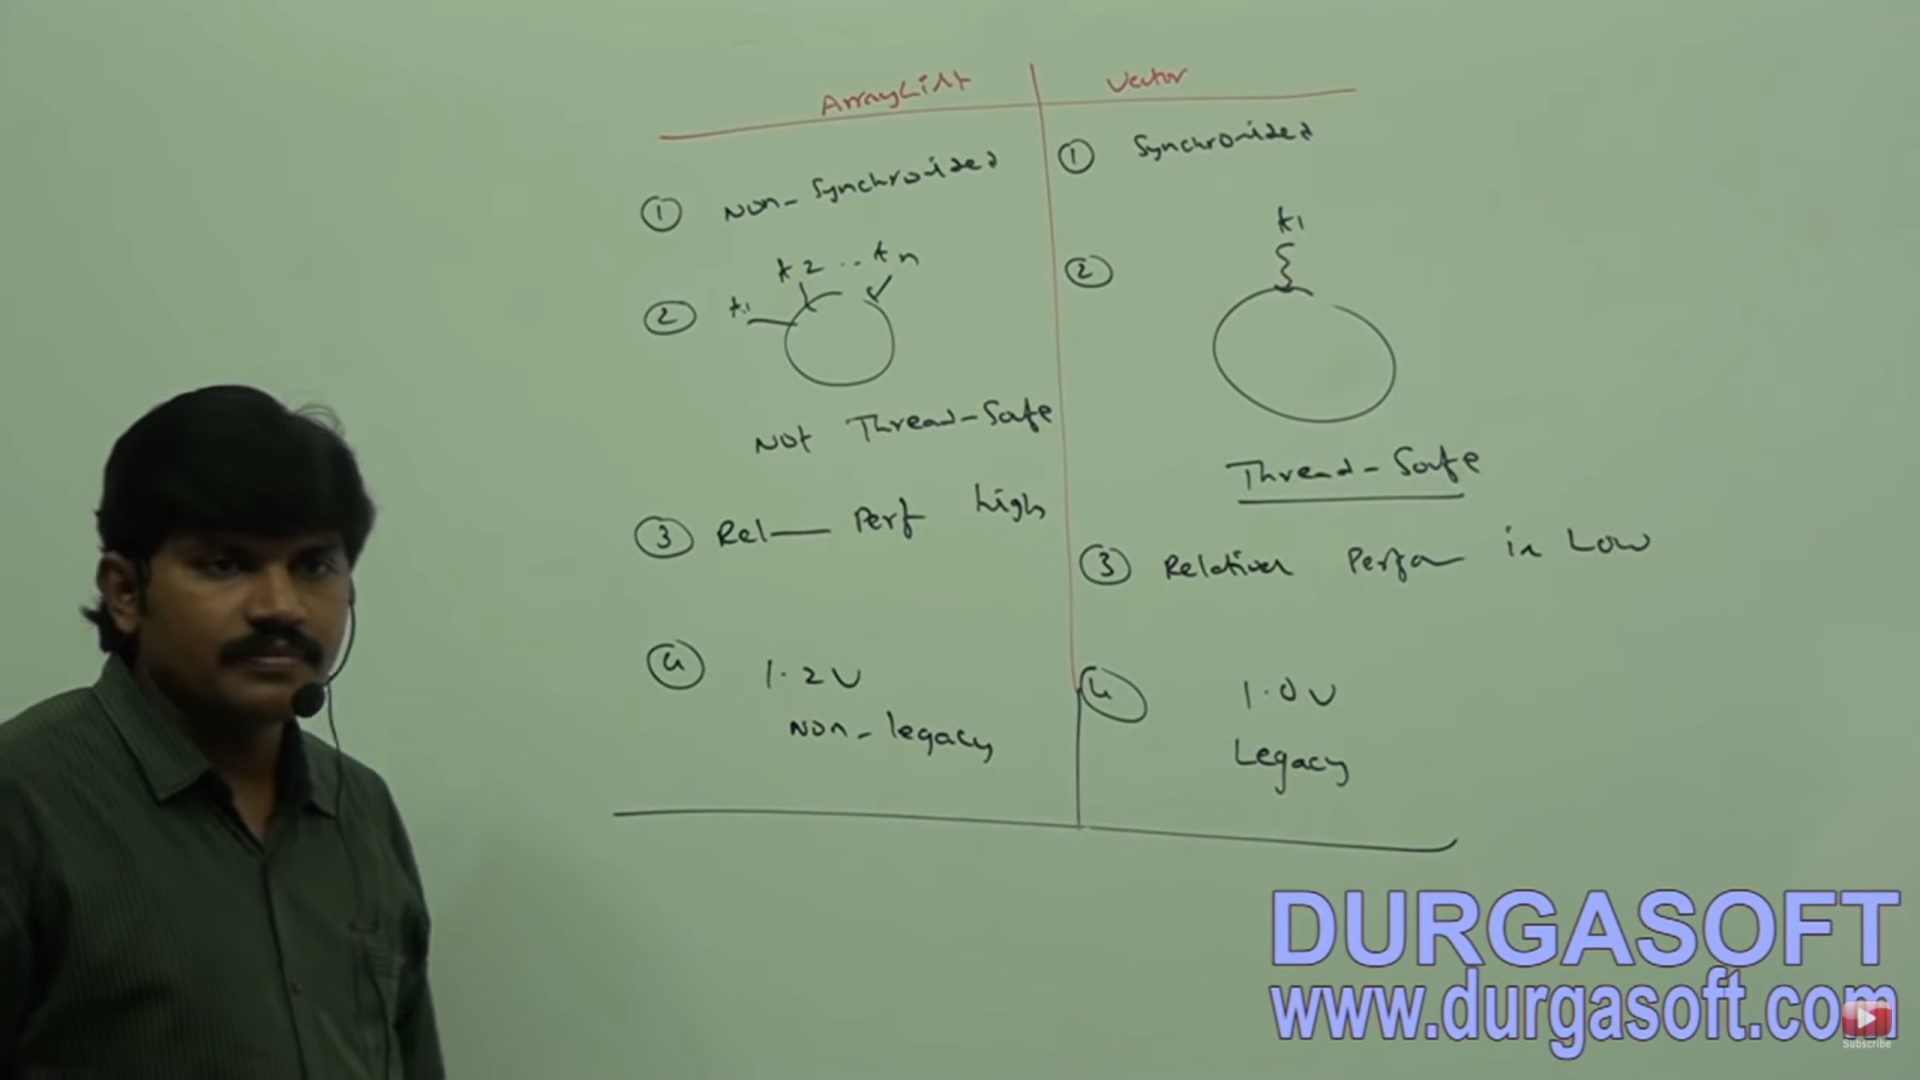 ArrayList
Vector
① Non-Synchronized
① Synchronized
② t1 t2 .. tn
Not Thread-Safe
② t1
Thread-Safe
③ Rel— Perf high
③ Perfo is Low
④ 1.2 V
Non-legacy
④ 1.0 V
Legacy
DURGASOFT
www.durgasoft.com
Subscribe